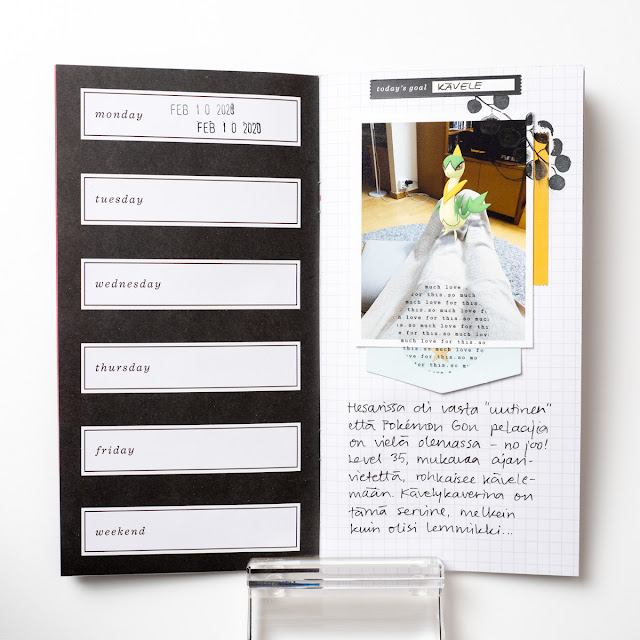 monday
FEB 10 2020
FEB 10 2020
tuesday
wednesday
thursday
friday
weekend
today's goal KÄVELE
much love
for this.so much
this.so much love
much love for this.
for this.so much love fo
is.so much love for this
much love for this.so
for this.so much love
this.so much love fo
much love for this.so mo
for this.so mu
Hesarissa oli vasta "uutinen"
että Pokémon Gon pelaajia
on vielä olemassa – no joo!
Level 35, mukavaa ajan-
vietettä, rohkaisee kävele-
mään. Kävelykaverina on
tämä servine, melkein
kuin olisi lemmikki...